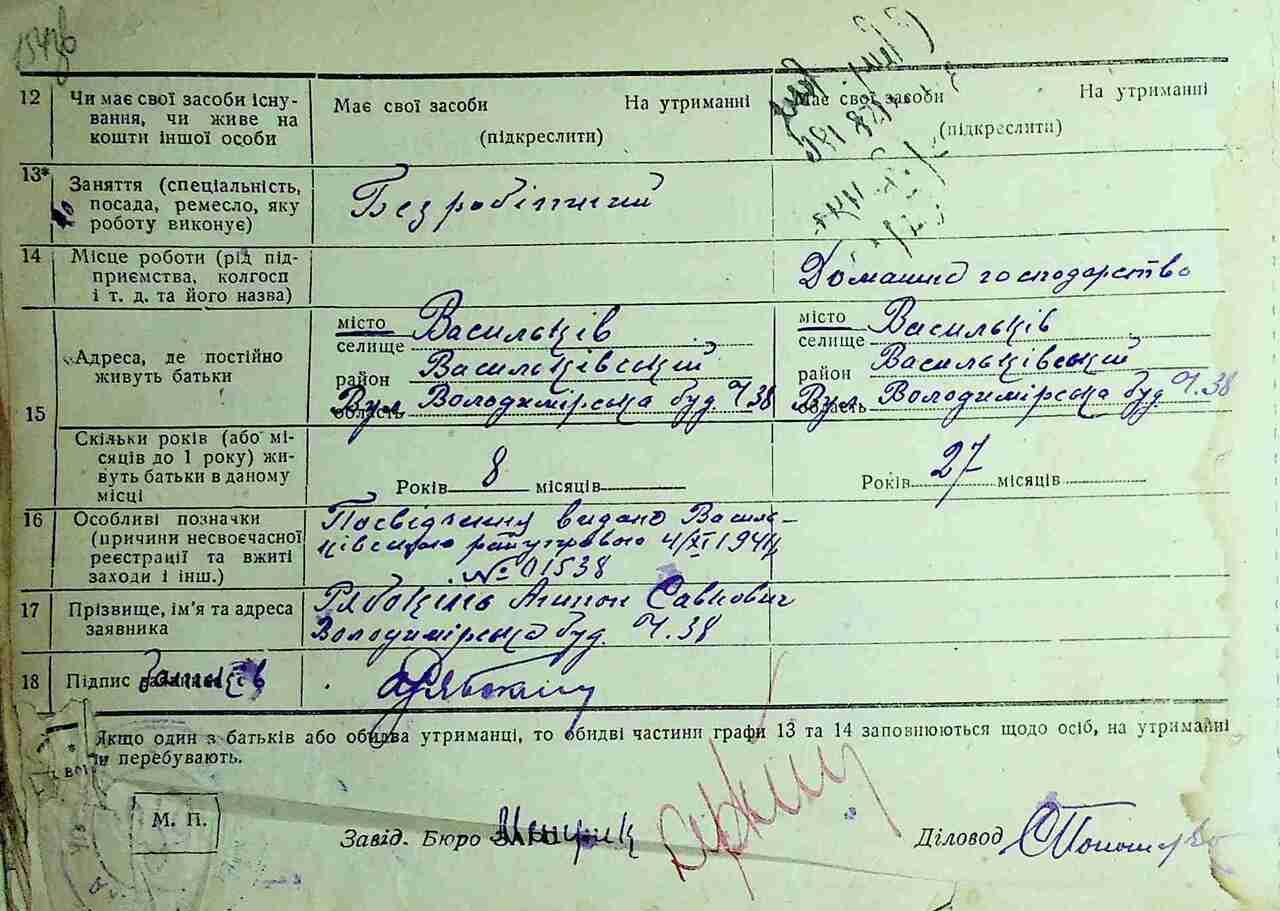 12 Чи має свої засоби існу-
вання, чи живе на
кошти іншої особи
Має свої засоби На утриманні
(підкреслити)
Має свої засоби На утриманні
(підкреслити)
13* Заняття (спеціальність,
посада, ремесло, яку
роботу виконує)
Безробітний
14 Місце роботи (рід під-
приємства, колгосп
і т. д. та його назва)
Домашнє господарство
15 Адреса, де постійно
живуть батьки
місто Васильків
селище
район Васильківський
область Вул Володимірська буд Ч.38
місто Васильків
селище
район Васильківський
область Вул. Володимірська буд Ч.38
Скільки років (або мі-
сяців до 1 року) жи-
вуть батьки в даному
місці
Років 8 місяців
Років 27 місяців
16 Особливі позначки
(причини несвоєчасної
реєстрації та вжиті
заходи і інш.)
Посвідчення видано Василь-
ківською райуправою 4/XI 1941
№ 01538
17 Прізвище, ім'я та адреса
заявника
Рябокінь Савкович
Володимірська буд. Ч.38
18 Підпис
* Якщо один з батьків або обидва утриманці, то обидві частини графи 13 та 14 заповнюються щодо осіб, на утриманні
перебувають.
М. П.
Завід. Бюро
Діловод